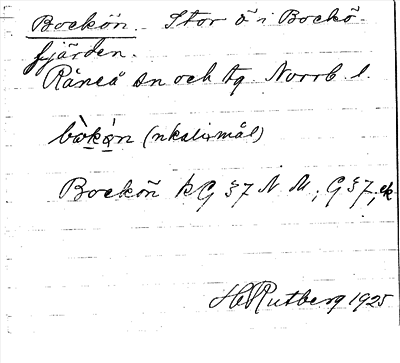 Bockön. Stor ö i Bockö-
fjärden.
Råneå sn och tg. Norrb. l.
(nkalixmål)
Bockön kG §7 N. M.; G §7, ek
H Rutberg 1925